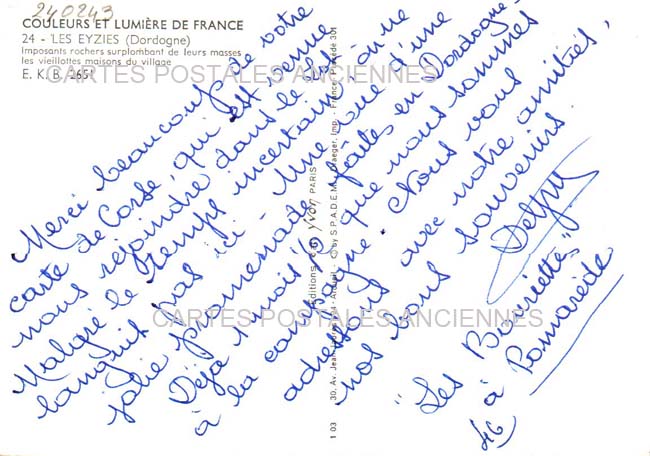 240243
COULEURS ET LUMIÈRE DE FRANCE
24 - LES EYZIES (Dordogne)
Imposants rochers surplombant de leurs masses
les vieillottes maisons du village
E. K. B. 2651
CARTES POSTALES ANCIENNES
Merci beaucoup de votre
carte de Corse, qui est venue
nous rejoindre dans le Lot.
Malgré le temps incertain, on ne
languit pas ici - Une vue d'une
jolie promenade faite en Dordogne -
Déjà 1 mois ½ que nous sommes
à la campagne. Nous vous
adressons avec notre amitiés,
nos bons souvenirs.
"Les Bruniettes"
46 à Pomarède
Editions d'art YVON PARIS
30, Av. Jean
S.P.A.D.E.M.
Draeger, Imp. - France
301
1 03
CARTES POSTALES ANCIENNES